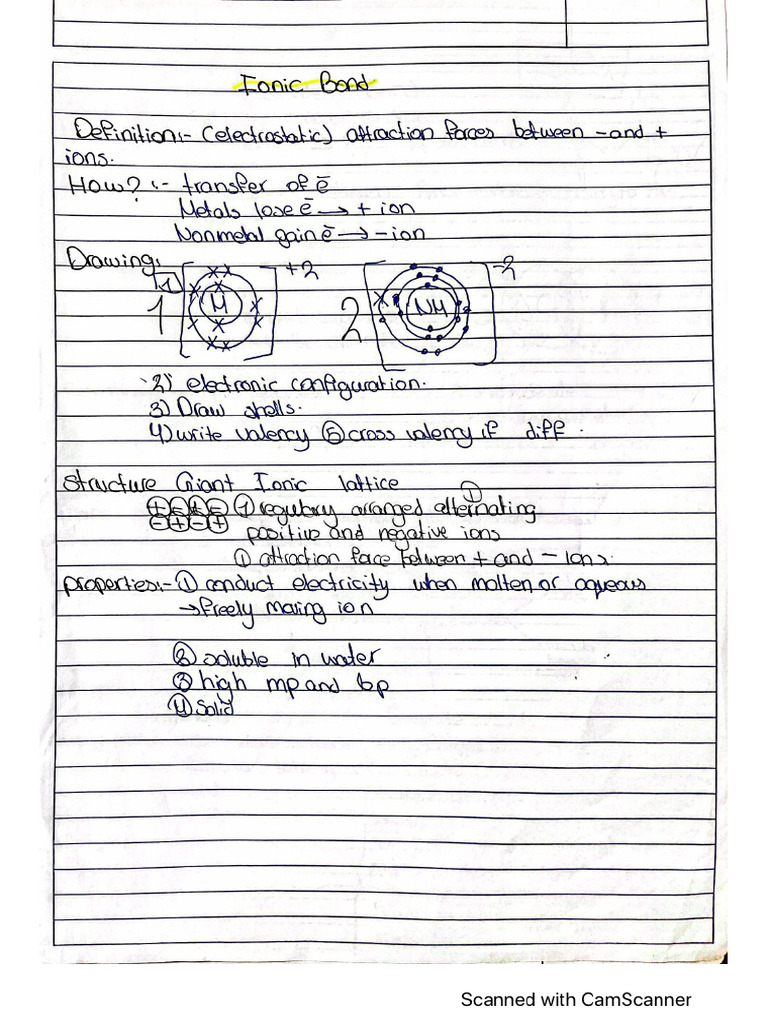 Ionic Bond
Definition:- (electrostatic) attraction forces between - and +
ions.
How? :- transfer of e̅
Metals lose e̅ → + ion
Nonmetal gain e̅ → - ion
Drawing:
1
1 M +2
2 NM -2
2) electronic configuration.
3) Draw shells.
4) write valency ⑤ cross valency if diff.
structure Giant Ionic lattice ①
+ - + - ① regulary arranged alternating
- + - + positive and negative ions
① attraction force between + and - Ions.
properties:- ① conduct electricity when molten or aqueous
→ freely moving ion
② soluble in water
③ high mp and bp
④ Solid
Scanned with CamScanner